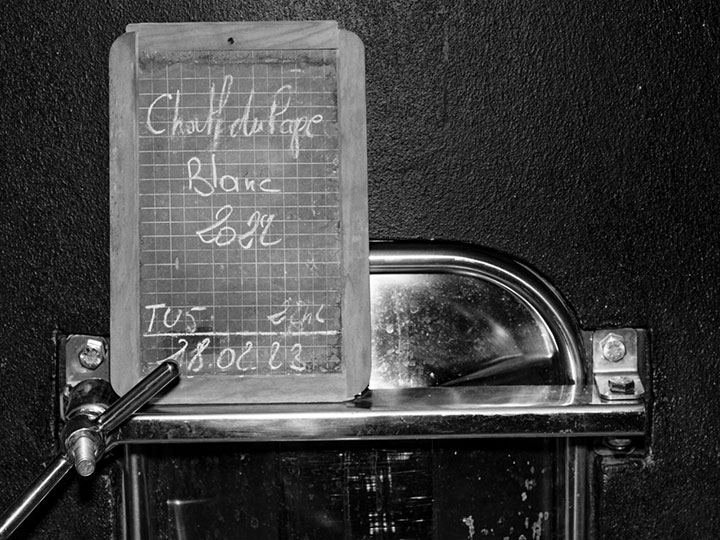 Chatf du Pape
Blanc
2022
TU5
28.02.23